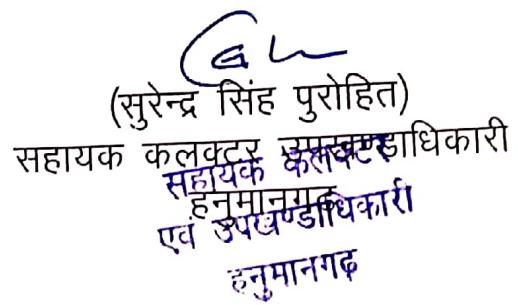 (सुरेन्द्र सिंह पुरोहित)
सहायक कलक्टर उपखण्डाधिकारी
हनुमानगढ़
सहायक कलक्टर
एवं उपखण्डाधिकारी
हनुमानगढ़